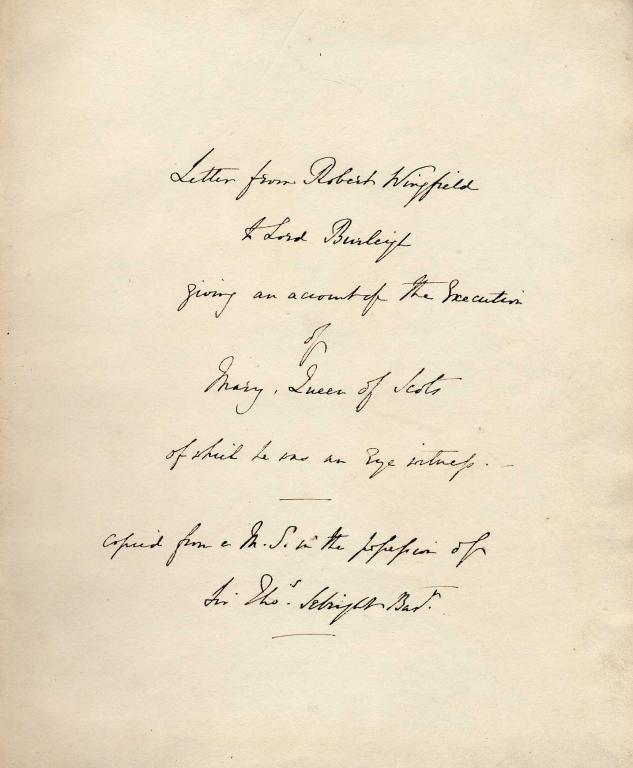 Letter from Robert Wingfield
to Lord Burleigh
giving an account of the Execution
of
Mary, Queen of Scots
of which he was an Eye witness. –
copied from a M.S. in the possession of
Sir Thos. Sebright Bart.